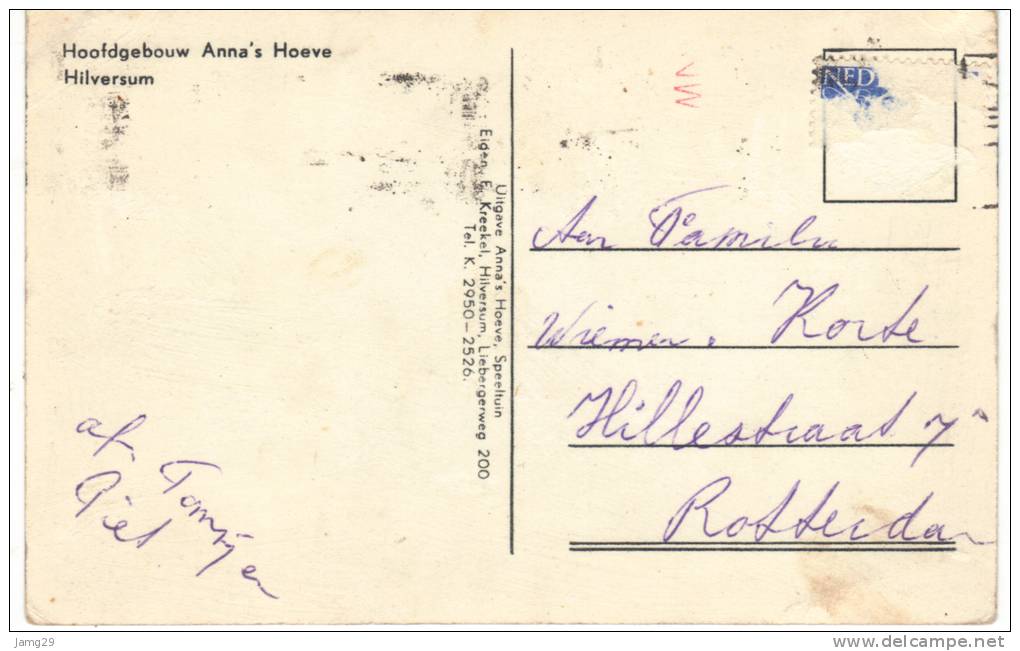 Hoofdgebouw Anna's Hoeve
Hilversum
NED
Uitgave Anna's Hoeve, Speeltuin
Eigen. F. Kreekel, Hilversum, Liebergerweg 200
Tel. K. 2950-2526.
Aan Familie
Wiemer. Korte
Hillestraat 7a
Rotterdam
af.
Tonnij en
Piet
jamg29
www.delcampe.net